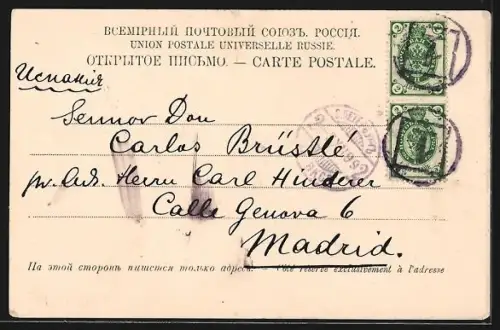 ВСЕМІРНЫЙ ПОЧТОВЫЙ СОЮЗЪ. РОССІЯ.
UNION POSTALE UNIVERSELLE RUSSIE.
ОТКРЫТОЕ ПИСЬМО. — CARTE POSTALE.
Испанія
Sennor Don
Carlos Brüstlé
pr. Adr. Herrn Carl Hinderer
Calle Genova 6
Madrid.
На этой сторонѣ пишется только адресъ. — Côté réservé exclusivement à l'adresse